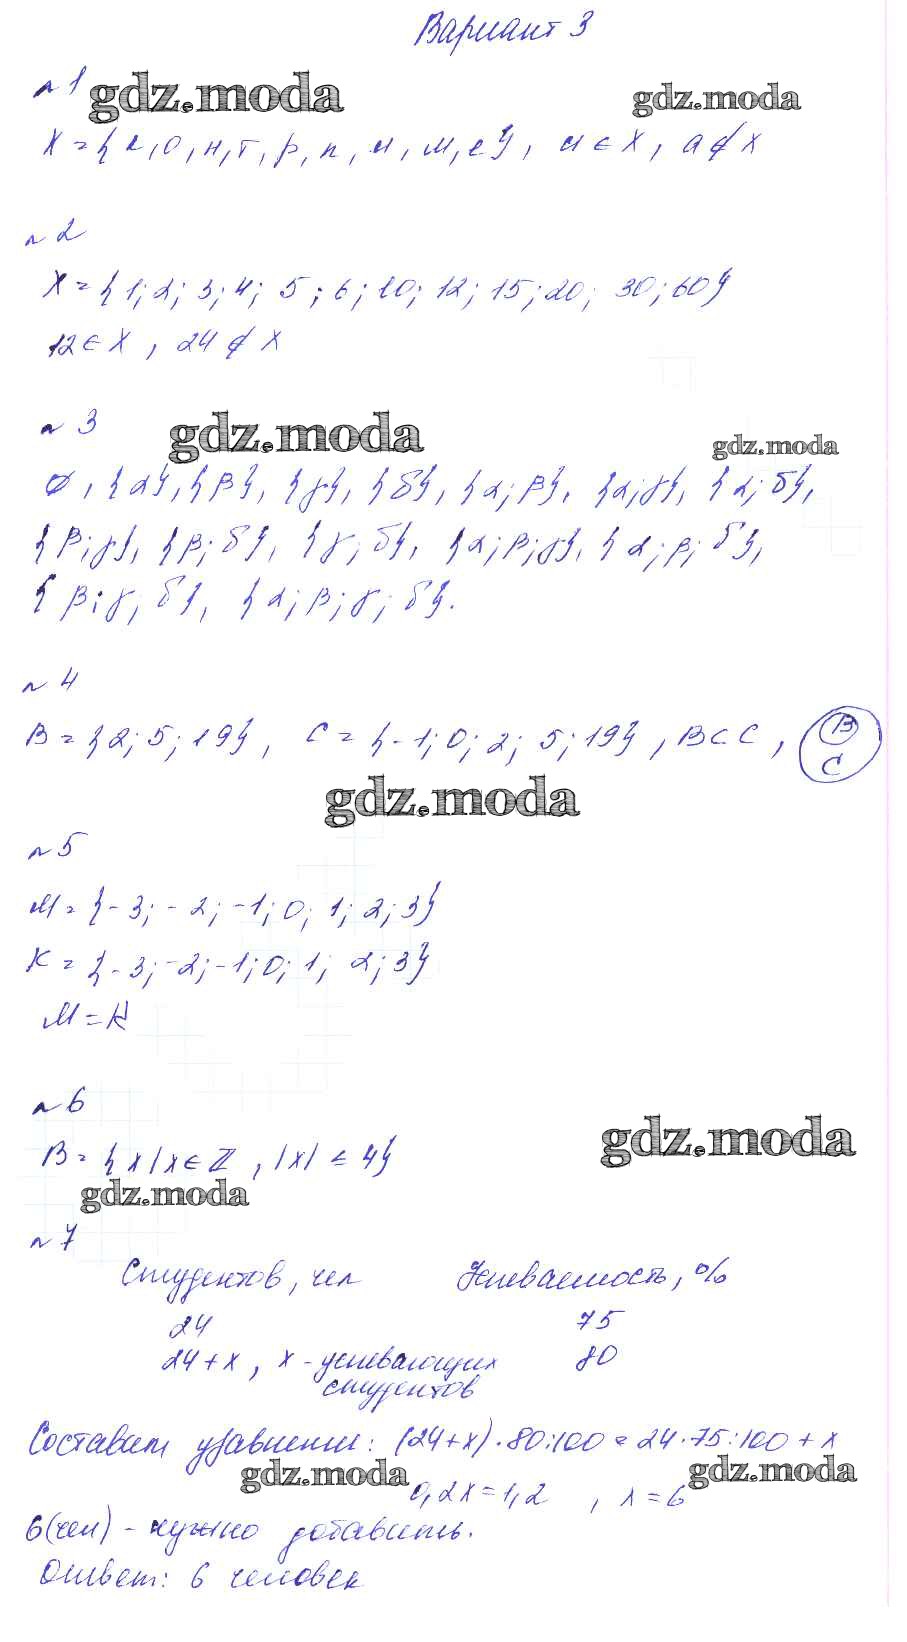 Вариант 3
n 1
gdz.moda
gdz.moda
X = { к, о, н, т, р, п, и, м, е }, и ∈ X, а ∉ X
n 2
X = { 1; 2; 3; 4; 5; 6; 10; 12; 15; 20; 30; 60 }
12 ∈ X, 24 ∉ X
n 3
gdz.moda
gdz.moda
∅, {α}, {β}, {γ}, {δ}, {α; β}, {α; γ}, {α; δ},
{β; γ}, {β; δ}, {γ; δ}, {α; β; γ}, {α; β; δ},
{β; γ; δ}, {α; β; γ; δ}.
n 4
B = {2; 5; 19}, C = {-1; 0; 2; 5; 19}, B ⊂ C,
B
C
gdz.moda
n 5
M = {-3; -2; -1; 0; 1; 2; 3}
K = {-3; -2; -1; 0; 1; 2; 3}
M = K
n 6
gdz.moda
B = { x | x ∈ ℤ, |x| ≤ 4}
gdz.moda
n 7
Студентов, чел Успеваемость, %
24 75
24 + x, x - успевающих 80
студентов
Составим уравнение: (24+x)·80:100 = 24·75:100 + x
gdz.moda
gdz.moda
0,2x = 1,2 , x = 6
6(чел) - нужно добавить.
Ответ: 6 человек